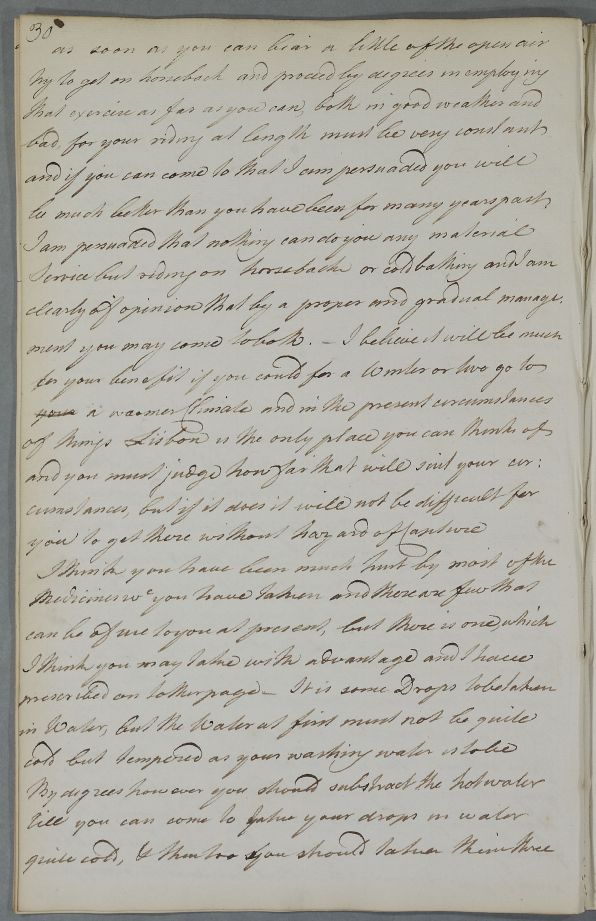 30
as soon as you can bear a little of the open air
try to get on horseback and proceed by degrees in employing
that exercise as far as you can, both in good weather and
bad, for your riding at length must be very constant
and if you can come to that I am persuaded you will
be much better than you have been for many years past,
I am persuaded that nothing can do you any material
Service but riding on horseback or cold bathing and I am
clearly of opinion that by a proper and gradual manage:
ment you may come to both. – I believe it will be much
for your benefit if you could for a Winter or two go to
your a warmer Climate and in the present circumstances
of things Lisbon is the only place you can think of
and you must judge how far that will suit your cir:
cumstances, but if it does it will not be difficult for
you to get there without hazard of Capture
I think you have been much hurt by most of the
Medicines wc you have taken and there are few that
can be of use to you at present, but there is one, which
I think you may take with advantage and I have
prescribed on tother page – It is some Drops to be taken
in Water, but the Water at first must not be quite
cold but tempered as your washing water is to be
By degrees however you should substract the hot water
till you can come to take your drops in water
quite cold, & then too you should take them three